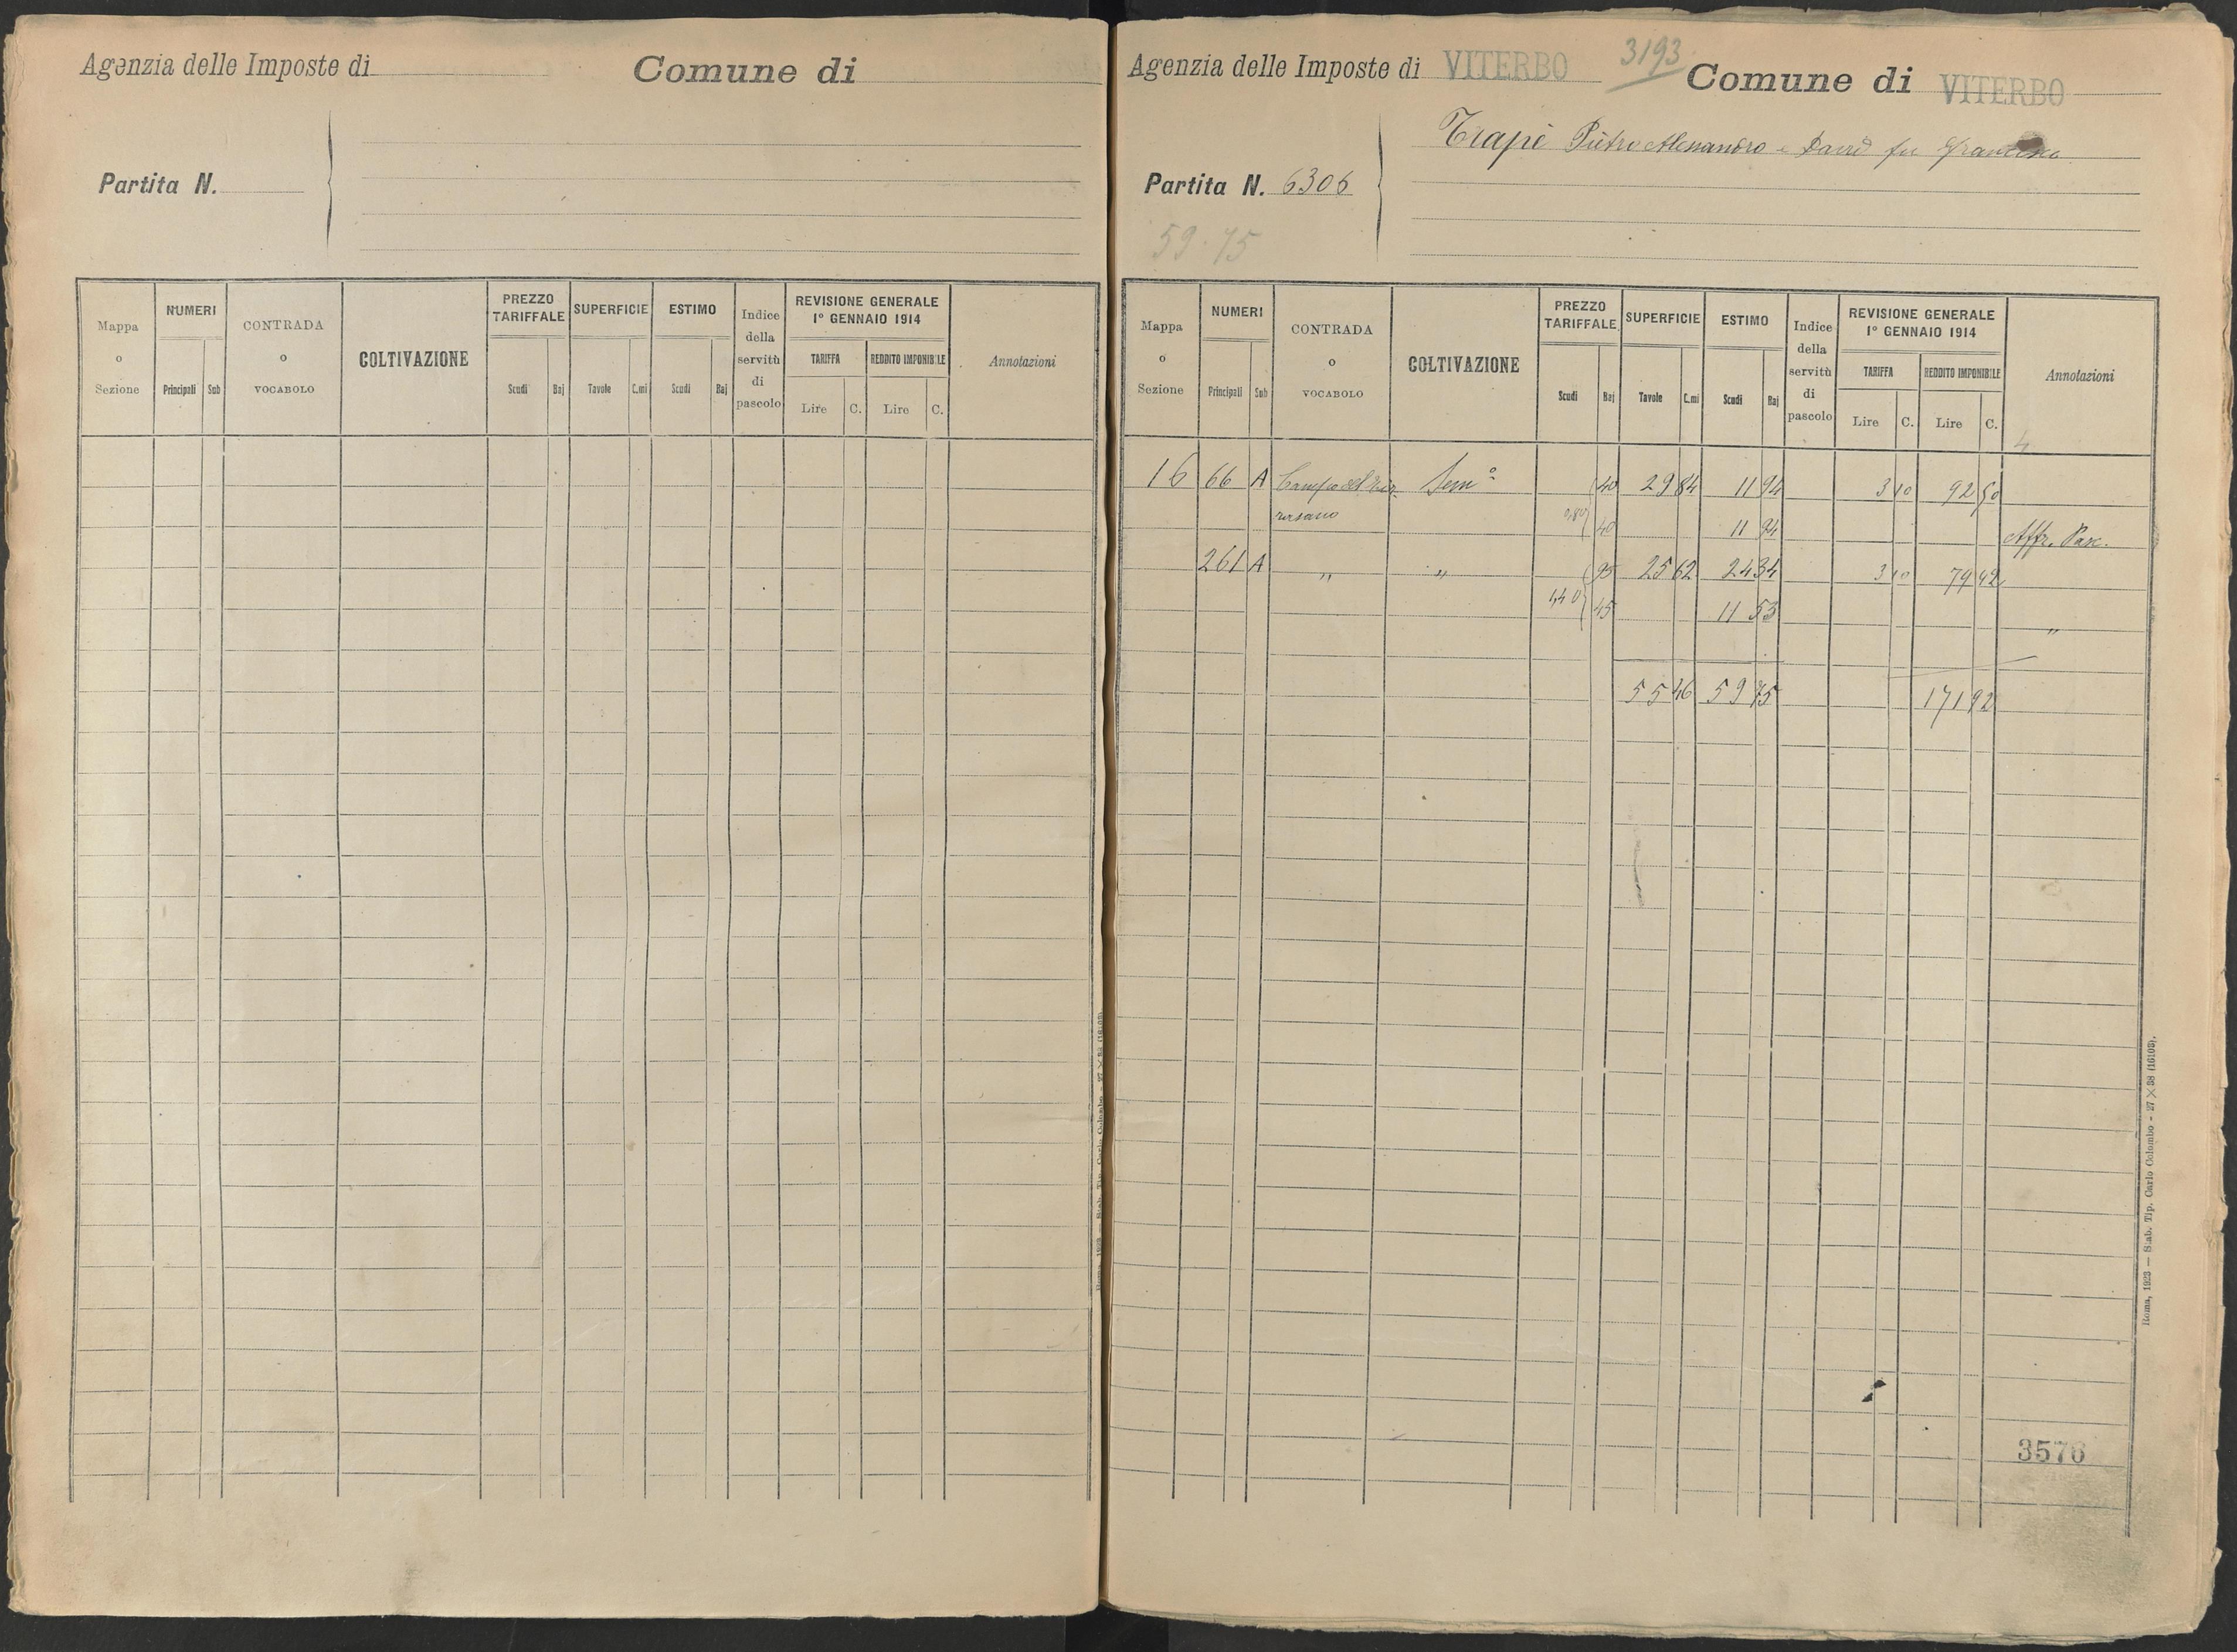 Agenzia delle Imposte di
Comune di
Partita N.
Mappa o Sezione
NUMERI
Principali Sub
CONTRADA o VOCABOLO
COLTIVAZIONE
PREZZO TARIFFALE
Scudi Baj
SUPERFICIE
Tavole C.mi
ESTIMO
Scudi Baj
Indice della servitù di pascolo
REVISIONE GENERALE 1º GENNAIO 1914
TARIFFA
Lire C.
REDDITO IMPONIBILE
Lire C.
Annotazioni
Agenzia delle Imposte di VITERBO 3193 Comune di VITERBO
Trapè Pietro Alessandro e David fu Francesco
Partita N. 6306
59.75
Mappa o Sezione
NUMERI
Principali Sub
CONTRADA o VOCABOLO
COLTIVAZIONE
PREZZO TARIFFALE
Scudi Baj
SUPERFICIE
Tavole C.mi
ESTIMO
Scudi Baj
Indice della servitù di pascolo
REVISIONE GENERALE 1º GENNAIO 1914
TARIFFA
Lire C.
REDDITO IMPONIBILE
Lire C.
Annotazioni
4
16 66 A Sem° 40 29 84 11 94 3 10 92 50
0,80 40 11 94 Affr. Pasc.
261 A " " 95 25 62 24 34 3 10 79 42
1,40 45 11 53 "
55 46 59 75 171 92
3576
Roma, 1923 — Stab. Tip. Carlo Colombo - 27 × 38 (16103).